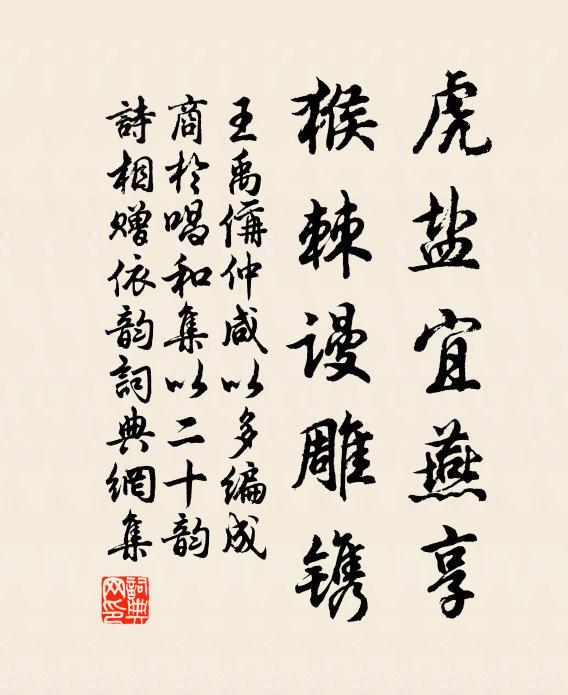 虎盐宜燕享
猴棘谩雕镌
王禹偁仲咸以多编成
商於唱和集以二十韵
詩相赠依韵詞典網集
詞典網印